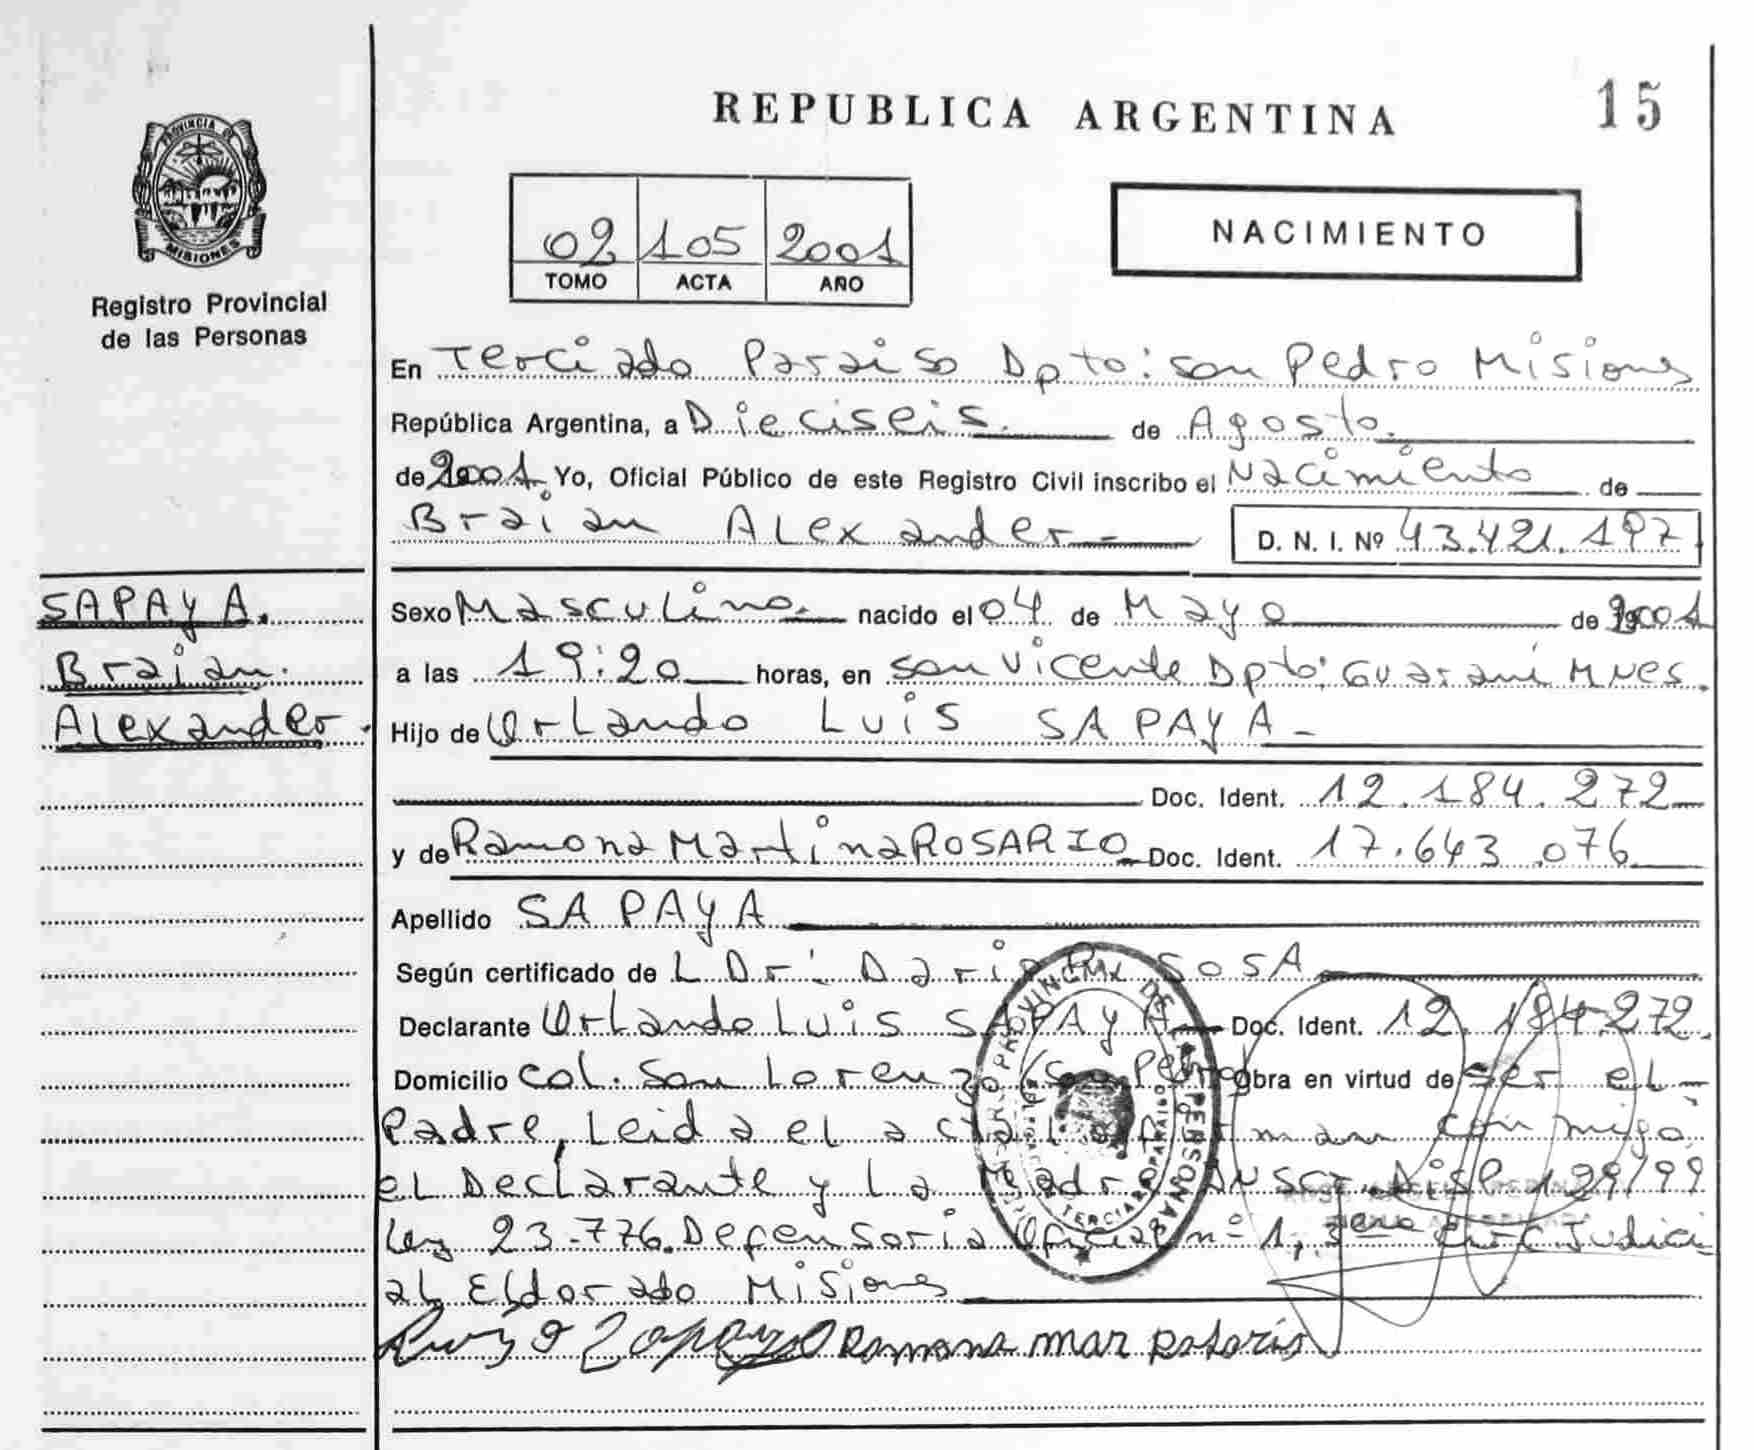 REPUBLICA ARGENTINA
15
PROVINCIA DE
MISIONES
Registro Provincial
de las Personas
02 105 2001
TOMO ACTA AÑO
NACIMIENTO
En Terciado Paraiso Dpto: San Pedro Misiones
República Argentina, a Dieciseis. de Agosto.
de 2001. Yo, Oficial Público de este Registro Civil inscribo el Nacimiento de
Braian Alexander D. N. I. Nº 43.421.197
SAPAYA.
Braian.
Alexander.
Sexo Masculino. nacido el 04 de Mayo de 2001
a las 19:20 horas, en San Vicente Dpto: Guaraní Mnes.
Hijo de Orlando Luis SAPAYA
Doc. Ident. 12.184.272
y de Ramona Martina ROSARIO Doc. Ident. 17.643.076
Apellido SAPAYA
Según certificado de L Dr: Dario R. SOSA
Declarante Orlando Luis SAPAYA Doc. Ident. 12.184.272.
Domicilio Col. San Lorenzo (San Pedro) Obra en virtud de ser el
Padre, Leida el acta la firman conmigo
el Declarante y La Madre Disp. 129/99
Ley 23.776. Defensoria Oficial nº 1, 3era Circ Judici
al Eldorado Misiones
Ramona mar Rosario